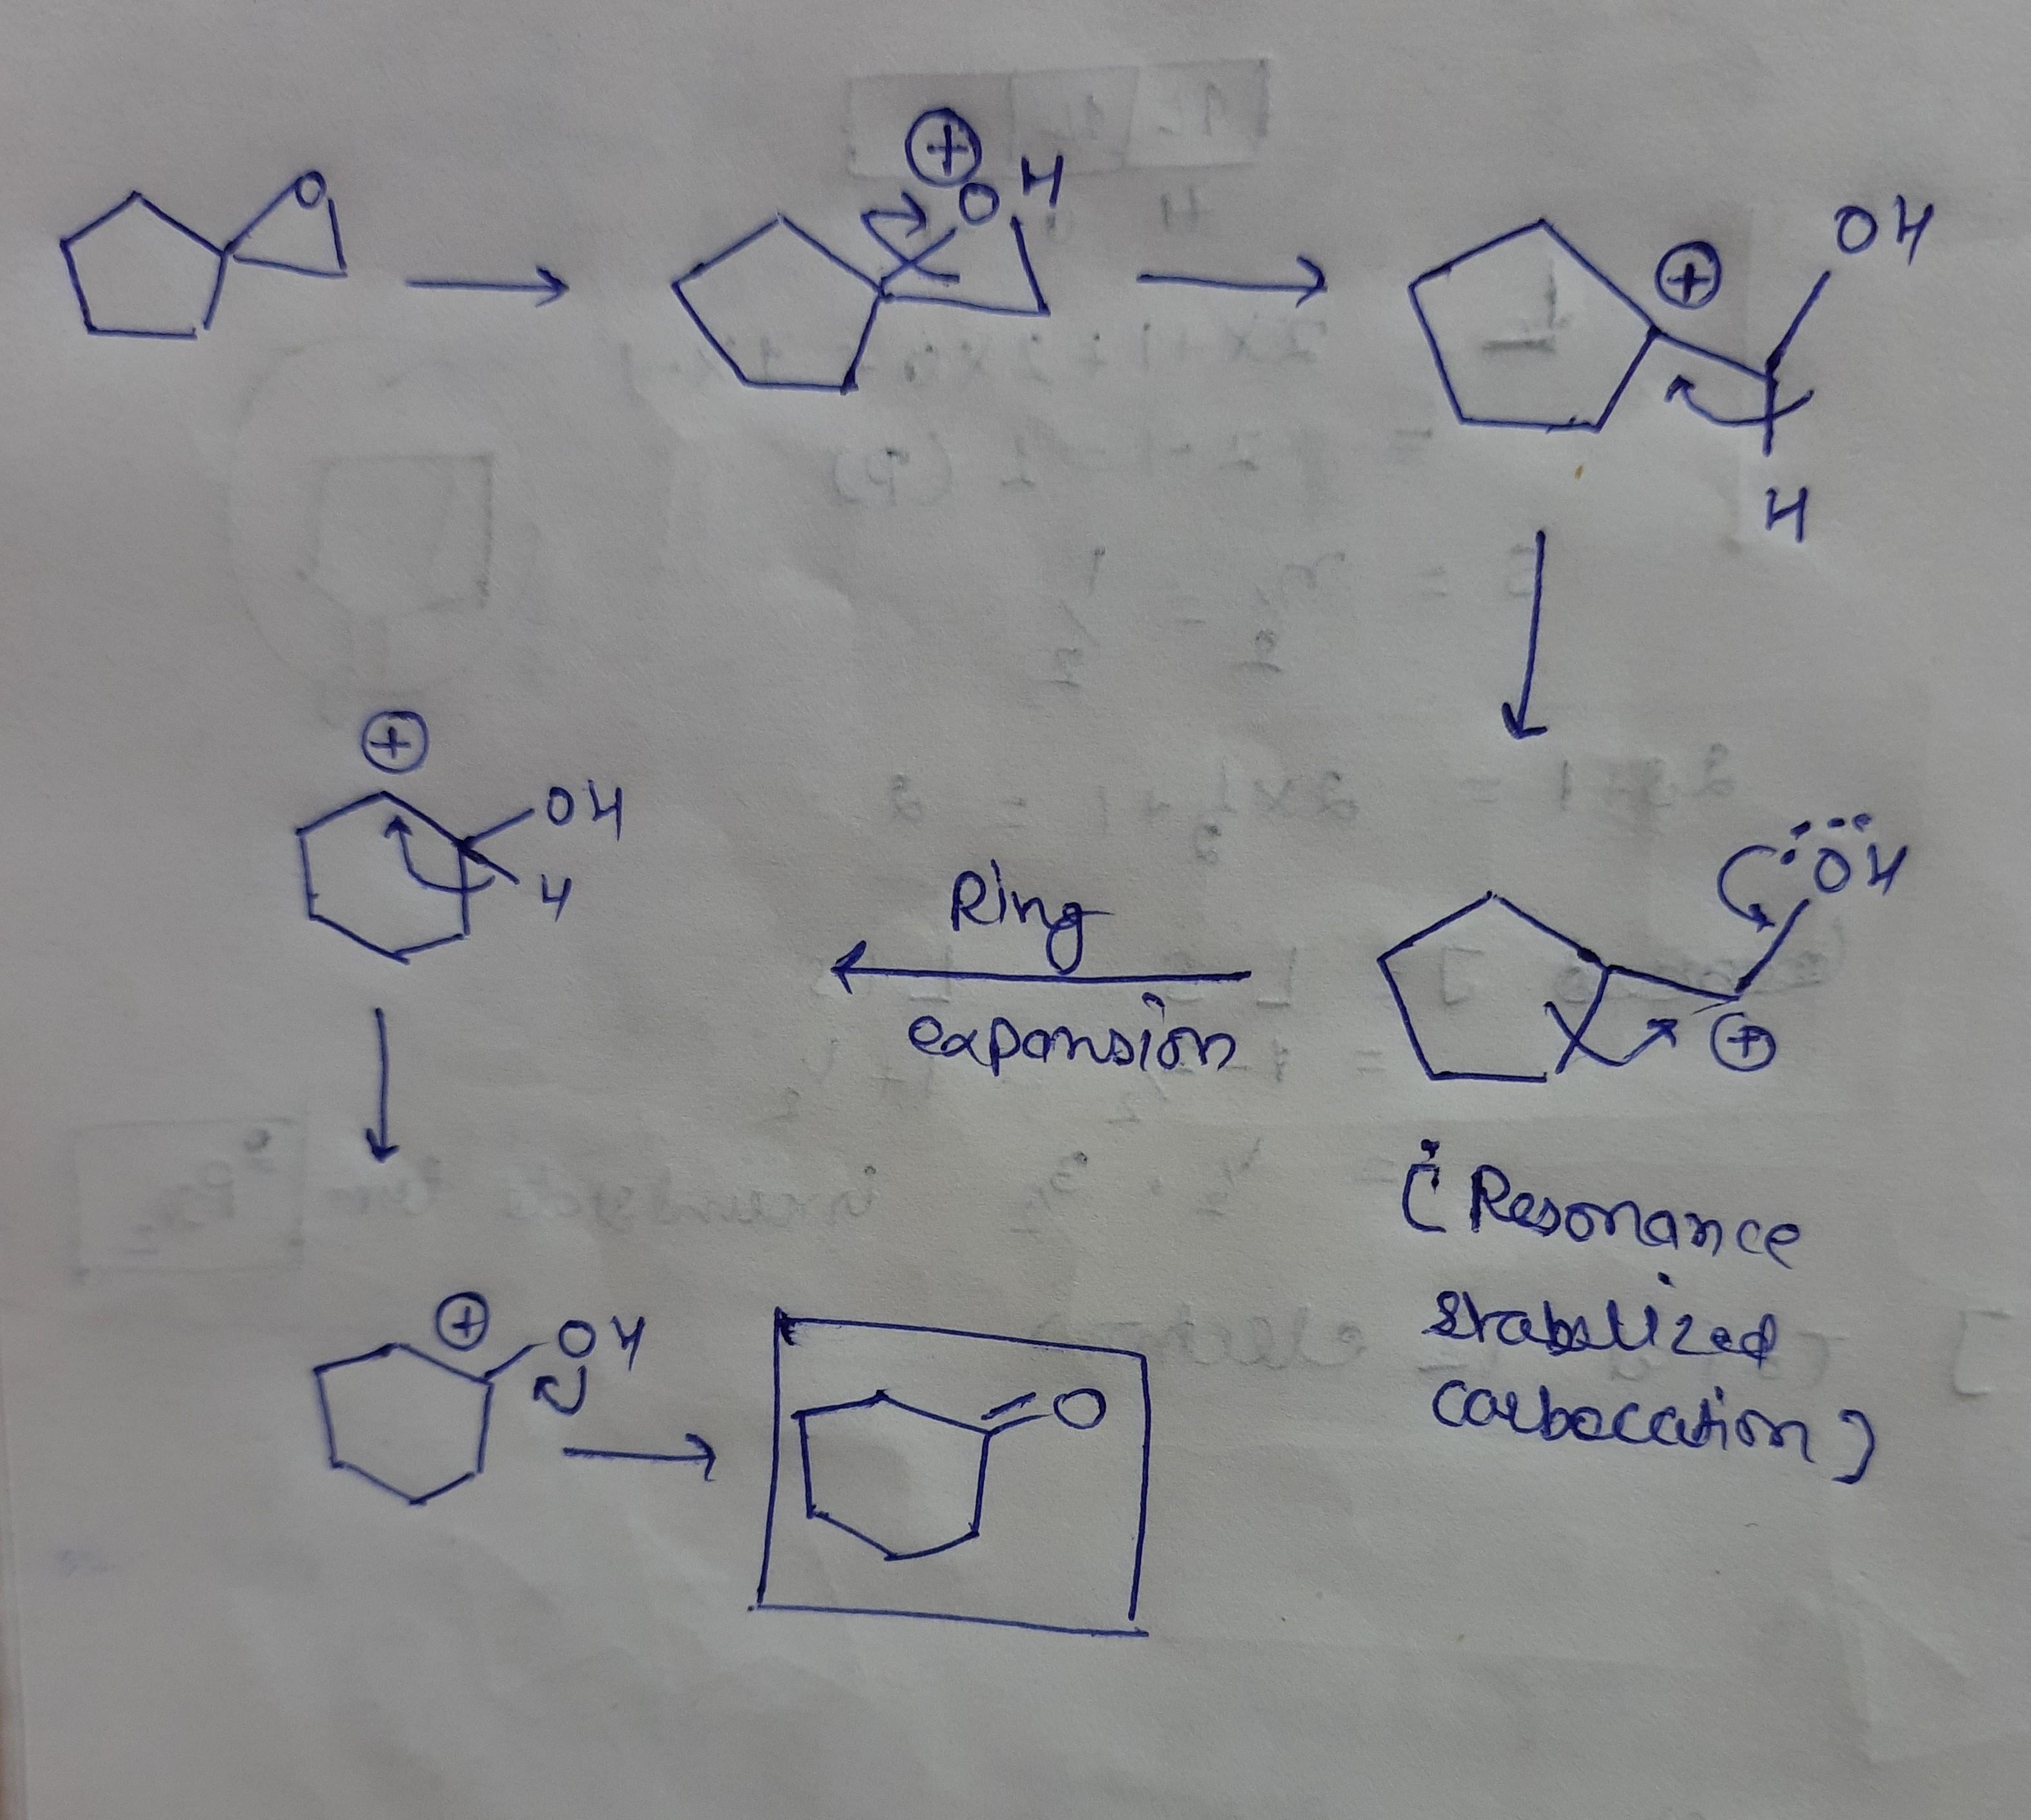 O
⊕
OH
⊕
OH
H
⊕
OH
H
Ring
expansion
:ÖH
⊕
(Resonance
stabilized
carbocation)
⊕
OH
O